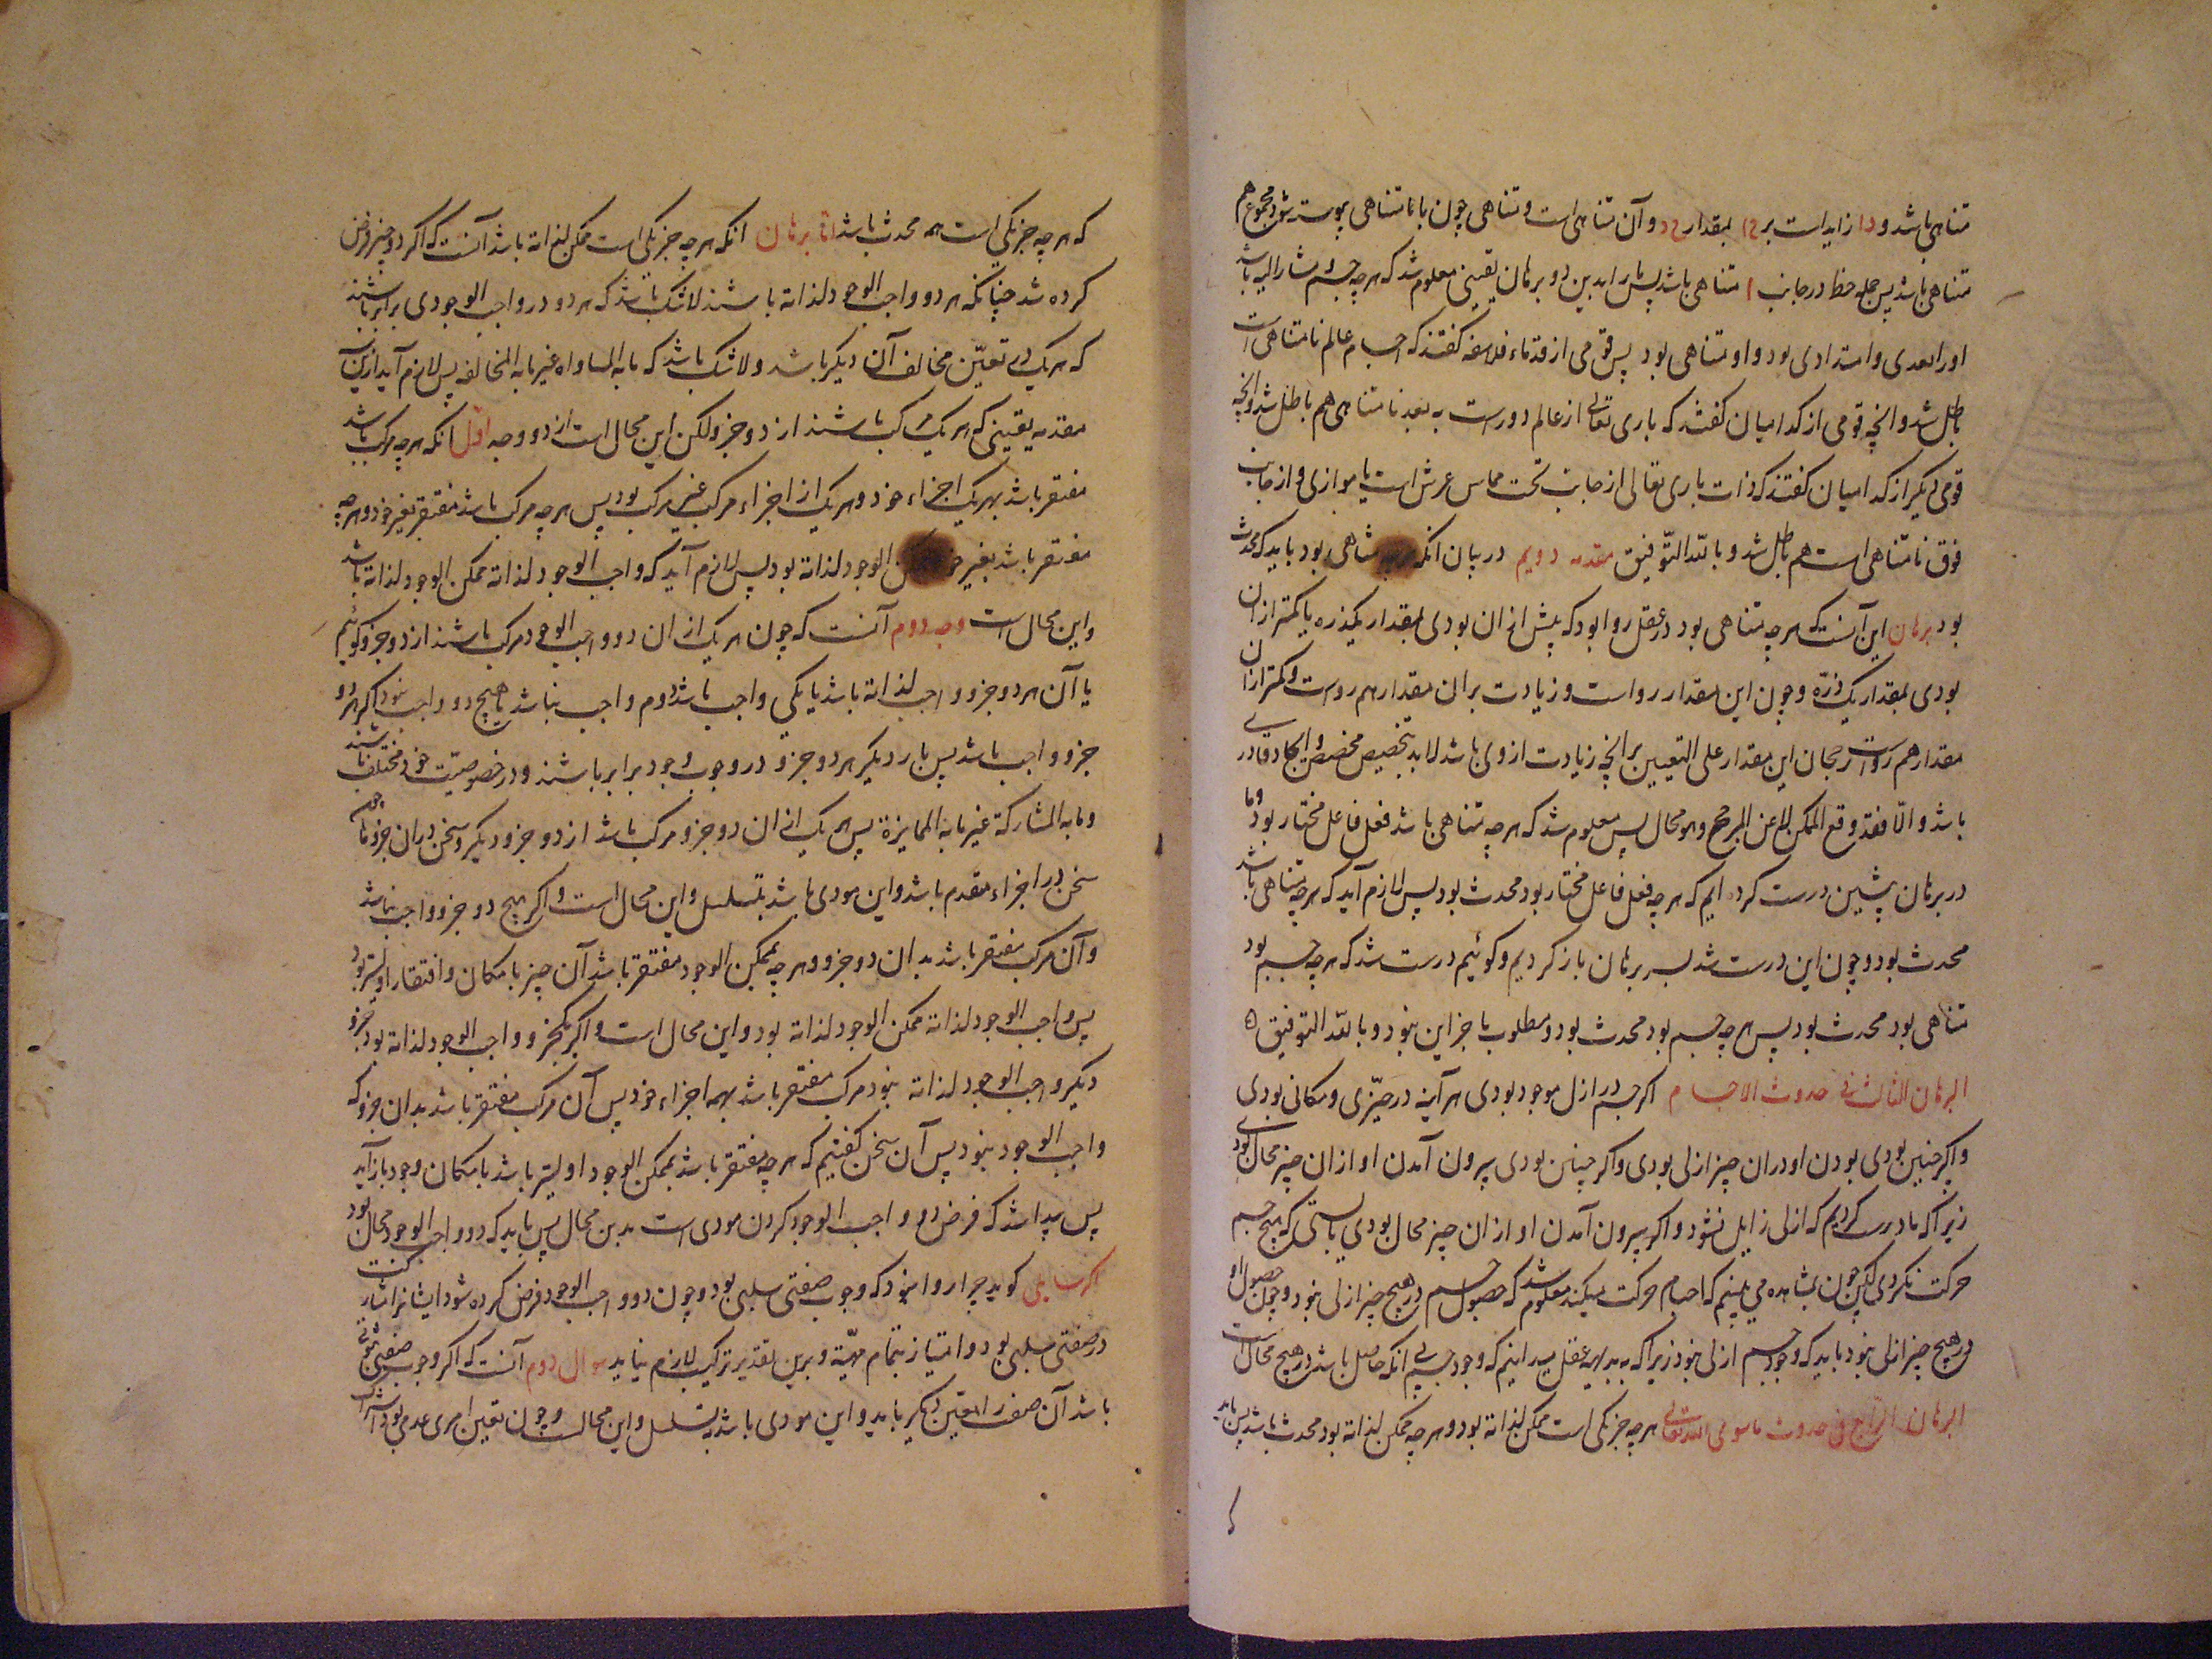 متناهی باشد و دا زاید است بر بمقدار و آن متناهی است و متناهی چون با نا متناهی پیوسته شود مجموع هم
متناهی باشد پس جمله خط در جانب ا متناهی باشد پس ما را بدین دو برهان یقینی معلوم شد که هر چه جسم و مشار الیه باشد
او را بعدی و امتدادی بود و او متناهی بود پس قومی از قدماء فلاسفه گفتند که اجسام عالم نامتناهی است
باطل شد و آنچه قومی از کرامیان گفتند که باری تعالی از عالم دورست به بعد نامتناهی هم باطل شد و آنچه
قومی دیگر از کرامیان گفتند که ذات باری تعالی از جانب تحت مماس عرش است یا موازی و از جانب
فوق نامتناهی است هم باطل شد و بالله التوفیق مقدمه دویم در بیان آنکه هر چه متناهی بود باید که محدث
بود برهان این آنست که هر چه متناهی بود در عقل روا بود که بیش از آن بودی بمقدار یکذره یا کمتر از آن
بودی بمقدار یک ذره و چون این مقدار رواست و زیادت بر آن مقدار هم رواست و کمتر از آن
مقدار هم رواست رجحان این مقدار علی التعیین بر آنچه زیادت از وی باشد لابد بتخصیص مخصص و ایجاد قادر
باشد و الا فقد وقع الممکن لا عن المرجح و هو محال پس معلوم شد که هر چه متناهی باشد فعل فاعل مختار بود و ما
در برهان پیشین درست کرده ایم که هر چه فعل فاعل مختار بود محدث بود پس لازم آید که هر چه متناهی باشد
محدث بود و چون این درست شد بسر برهان باز کردیم و گوئیم درست شد که هر چه جسم بود
متناهی بود محدث بود پس هر چه جسم بود محدث بود و مطلوب ما جز این نبود و بالله التوفیق ه
البرهان الثالث فی حدوث الاجسام اگر جسم در ازل موجود بودی هر آینه در حیزی و مکانی بودی
و اگر چنین بودی بودن او در آن حیز ازلی بودی و اگر چنین بودی بیرون آمدن او از آن حیز محال بودی
زیرا که ما درست کردیم که ازلی زایل نشود و اگر بیرون آمدن او از آن حیز محال بودی بایستی که هیچ جسم
حرکت نکردی لکن چون بمشاهده می بینیم که اجسام حرکت میکنند معلوم شد که حصول جسم در هیچ حیز ازلی نبود و چون حصول او
در هیچ حیز ازلی نبود باید که وجود جسم ازلی نبود زیرا که به بدیهه عقل میدانیم که وجود جسم بی آنکه حاصل باشد در هیچ محال است
البرهان الرابع فی حدوث ما سوی الله تعالی هر چه جز یکی است ممکن لذاته بود و هر چه ممکن لذاته بود محدث باشد پس باید
که هر چه جز یکی است همه محدث باشد اما برهان آنکه هر چه جز یکی است ممکن لذاته باشد آنست که اگر دو چیز فرض
کرده شد چنانکه هر دو واجب الوجود لذاته باشند لا شک باشد که هر دو در واجب الوجودی برابر باشند
که هر یک بی تعین مخالف آن دیگر باشد و لا شک باشد که ما به المساواه غیر ما به المخالفه پس لازم آید از این
مقدمه یقینی که هر یک مرکب باشند از دو جزو لکن این محال است از دو وجه اول آنکه هر چه مرکب باشد
مفتقر باشد بهر یک اجزاء خود و هر یک از اجزاء مرکب غیر مرکب بود پس هر چه مرکب باشد مفتقر بغیر خود و هر چه
مفتقر باشد بغیر الوجود لذاته بود پس لازم آید که واجب الوجود لذاته ممکن الوجود لذاته باشد
و این محال است وجه دوم آنست که چون هر یک از آن دو واجب الوجود مرکب باشند از دو جزو گوئیم
یا آن هر دو جزو واجب لذاته باشد یا یکی واجب باشد دوم واجب نباشد یا هیچ دو واجب نبود اگر هر دو
جزو واجب باشد پس بار دیگر هر دو جزو در وجوب وجود برابر باشند و در خصوصیت خود مختلف باشند
و ما به المشارکة غیر ما به الممایزة پس هر یک از آن دو جزو مرکب باشد از دو جزو دیگر و سخن در آن جزوها
سخن در اجزاء مقدم باشد و این مودی باشد بتسلسل و این محال است و اگر هیچ دو جزو واجب نباشد
و آن مرکب مفتقر باشد بدان دو جزو و هر چه بممکن الوجود مفتقر باشد آن چیز بامکان و افتقار اولیتر بود
پس واجب الوجود لذاته ممکن الوجود لذاته بود و این محال است و اگر یکجزو واجب الوجود لذاته بود جزو
دیگر واجب الوجود لذاته نبود مرکب مفتقر باشد بهمه اجزاء خود پس آن مرکب مفتقر باشد بدان جزو که
واجب الوجود نبود پس آن سخن گفتیم که هر چه مفتقر باشد بممکن الوجود اولیتر باشد بامکان وجود باز آید
پس پیدا شد که فرض دو واجب الوجود کردن مودی است بدین محال پس باید که دو واجب الوجود محال بود
اگر سایلی گوید چرا روا نبود که وجوب صفتی سلبی بود و چون دو واجب الوجود فرض کرده شود ایشانرا مشارکت
در صفتی سلبی بود و امتیاز بتمام مهیة و برین تقدیر ترکیب لازم نیاید سوال دوم آنست که اگر وجوب صفتی ثبوتی
باشد آن صفت را تعین دیگر باید و این مودی باشد بتسلسل و این محالست و چون تعین امری عدمی بود اشتراک